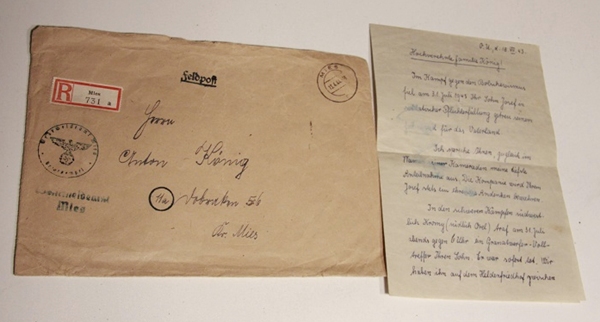 Feldpost
MIES
R
Mies
731 a
Herrn
Anton König
11a
Dobraken 56
Kr. Mies
Wehrmeldeamt Mies
Wehrmeldeamt
Mies
O.U., d. 18.
Hochverehrte Familie König!
Im Kampf gegen den Bolschewismus
fiel am 31. Juli 1943 Ihr Sohn Josef in
soldatischer Pflichterfüllung getreu seinem
für das Vaterland.
Ich spreche Ihnen, zugleich im
Namen seiner Kameraden meine tiefste
Anteilnahme aus. Die Kompanie wird Ihrem
Josef stets ein Andenken bewahren.
In den schweren Kämpfen südwest-
lich (südlich Orel) traf am 31. Juli
abends gegen 6 Uhr ein Granatwerfer-Voll-
treffer Ihren Sohn. Er war sofort tot. Wir
haben ihn auf dem Heldenfriedhof